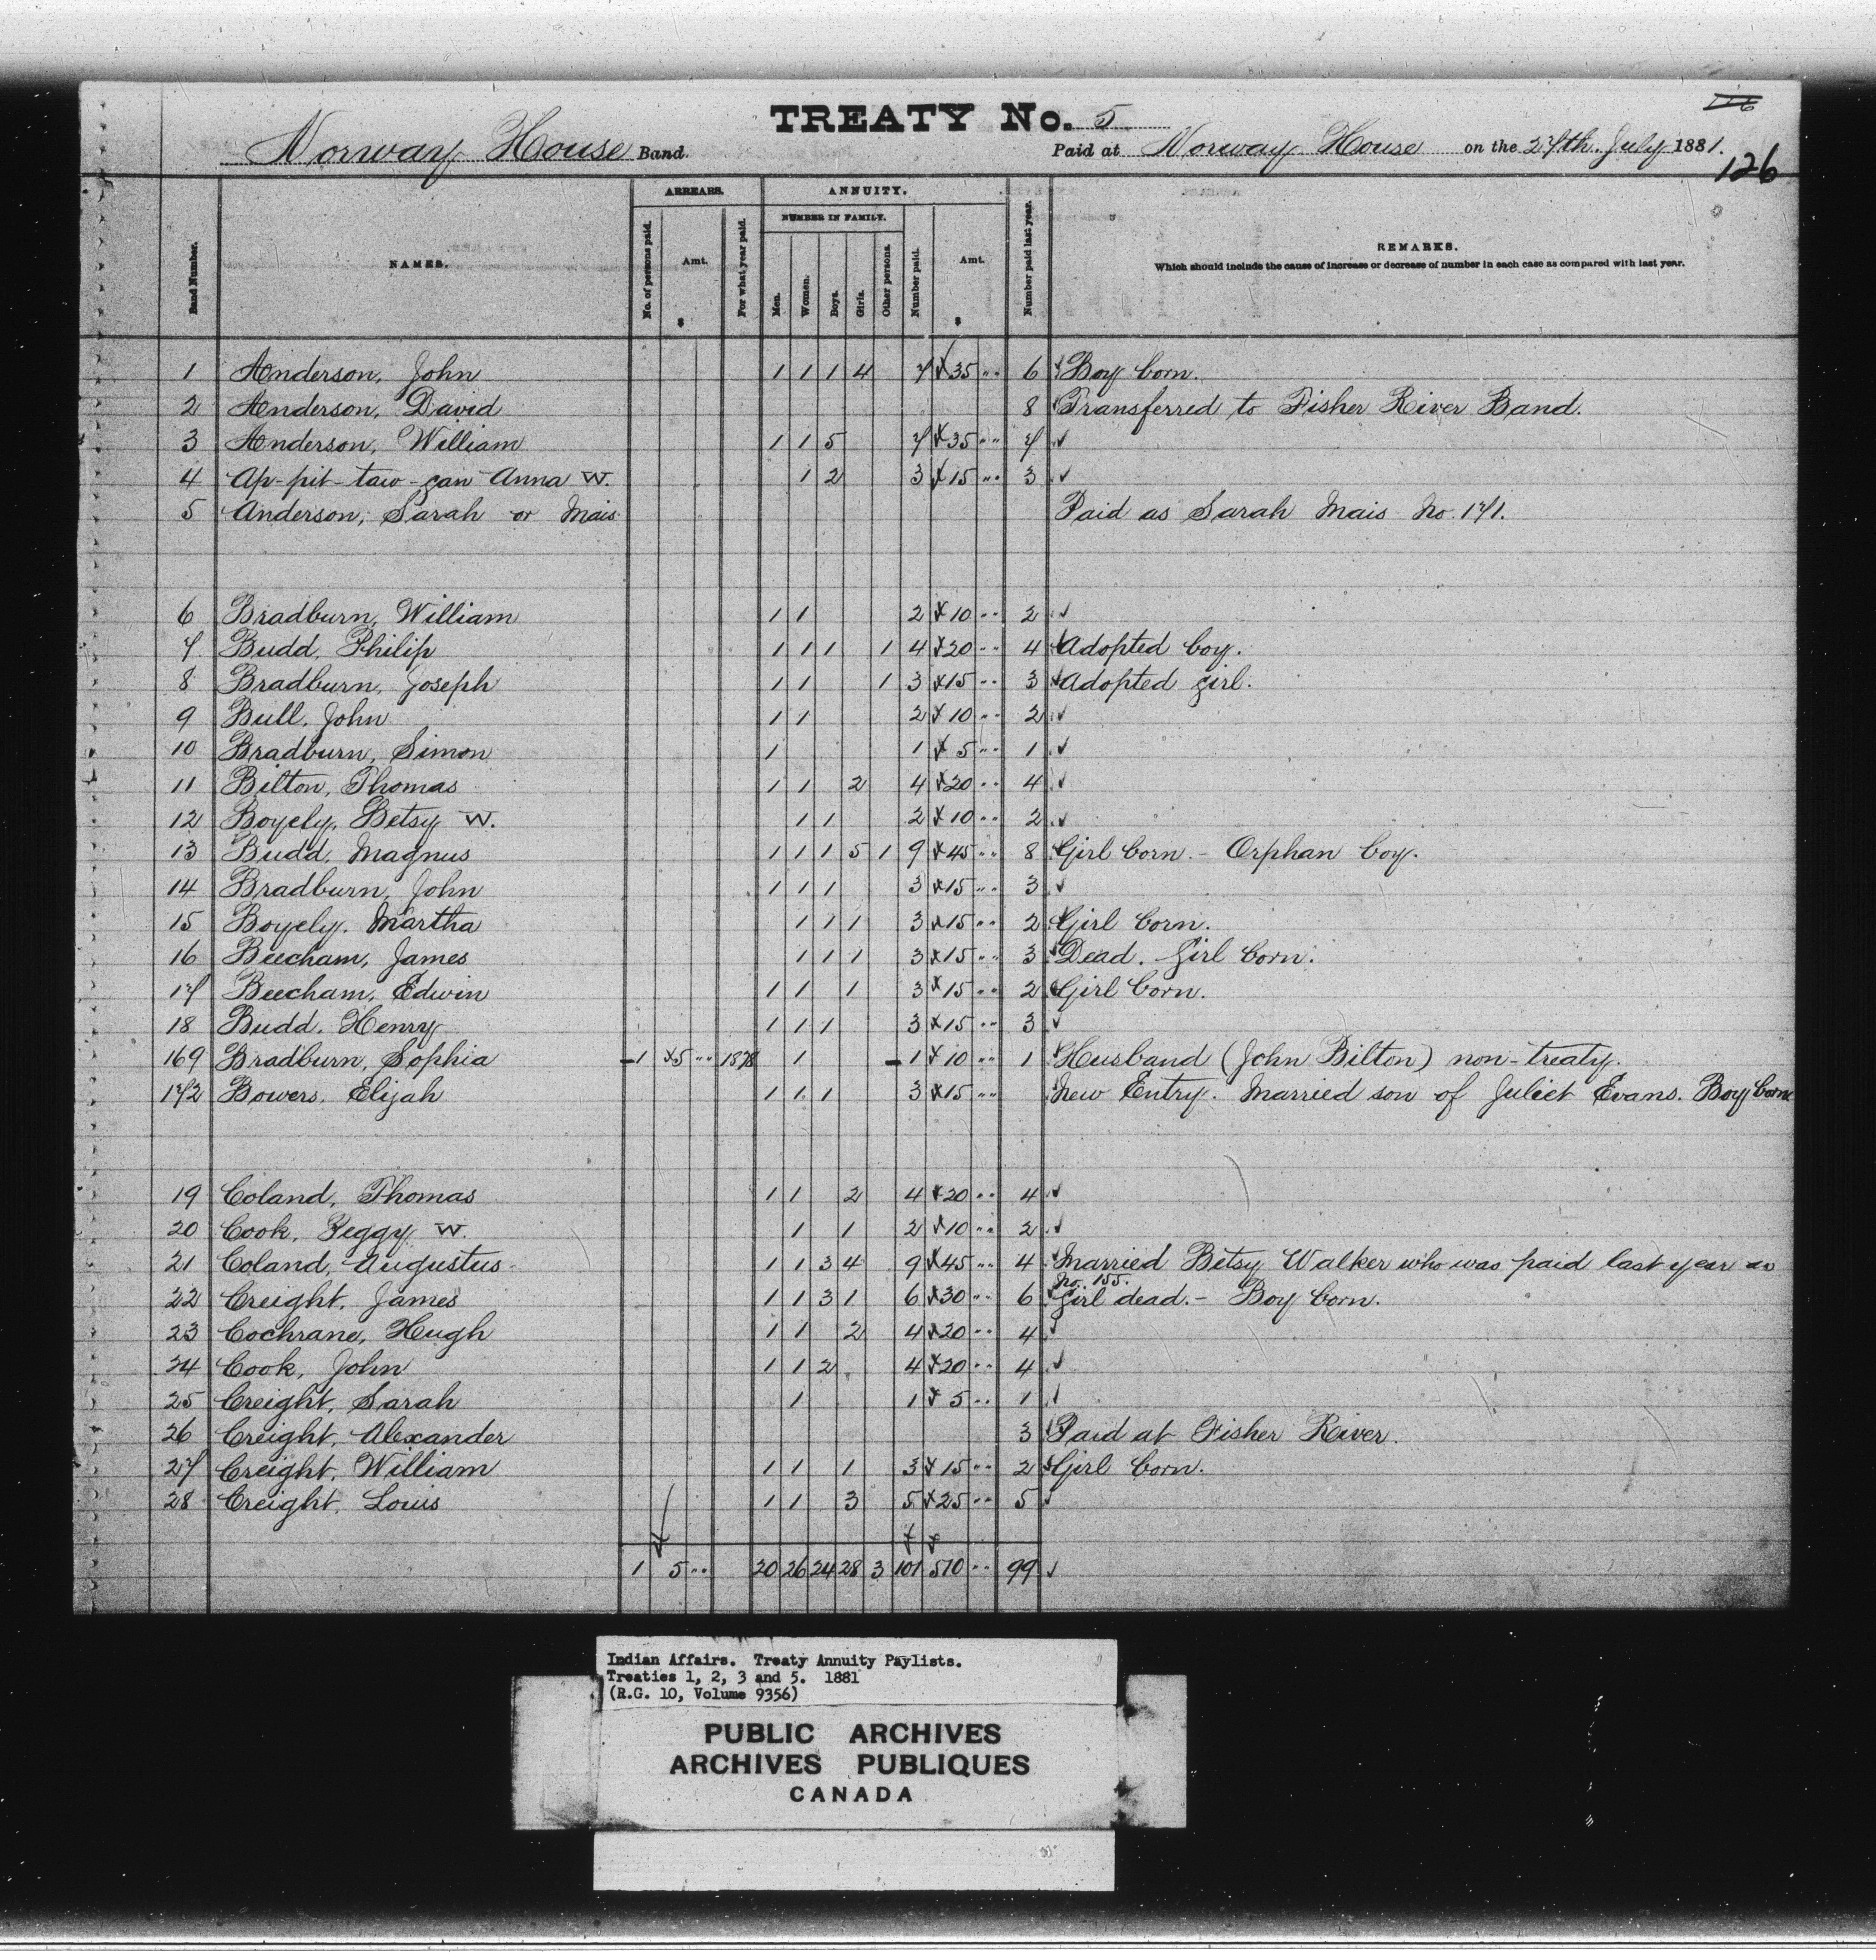 TREATY No. 5
126
Norway House Band.
Paid at Norway House on the 27th July 1881.
126
Band Number.
NAMES.
ARREARS.
No. of persons paid.
Amt.
$
For what year paid.
ANNUITY.
NUMBER IN FAMILY.
Men.
Women.
Boys.
Girls.
Other persons.
Number paid.
Amt.
$
Number paid last year.
REMARKS.
Which should include the cause of increase or decrease of number in each case as compared with last year.
1 Anderson, John 1 1 1 4 7 35 " 6 Boy born.
2 Anderson, David 8 Transferred to Fisher River Band.
3 Anderson, William 1 1 5 7 35 " 7 ✓
4 Ap-pit-taw-gan Anna W. 1 2 3 15 " 3 ✓
5 Anderson, Sarah or Mais Paid as Sarah Mais No. 171.
6 Bradburn, William 1 1 2 10 " 2 ✓
7 Budd, Philip 1 1 1 1 4 20 " 4 Adopted boy.
8 Bradburn, Joseph 1 1 1 3 15 " 3 Adopted girl.
9 Bull, John 1 1 2 10 " 2 ✓
10 Bradburn, Simon 1 1 5 " 1 ✓
11 Bilton, Thomas 1 1 2 4 20 " 4 ✓
12 Boyely, Betsy W. 1 1 2 10 " 2 ✓
13 Budd, Magnus 1 1 1 5 1 9 45 " 8 Girl born. - Orphan boy.
14 Bradburn, John 1 1 1 3 15 " 3 ✓
15 Boyely, Martha 1 1 1 3 15 " 2 Girl born.
16 Beecham, James 1 1 1 3 15 " 3 Dead. Girl born.
17 Beecham, Edwin 1 1 1 3 15 " 2 Girl born.
18 Budd, Henry 1 1 1 3 15 " 3 ✓
169 Bradburn, Sophia 1 5 " 1878 1 1 10 " 1 Husband (John Bilton) non-treaty.
172 Bowers, Elijah 1 1 1 3 15 " New Entry. Married son of Juliet Evans. Boy born
19 Coland, Thomas 1 1 2 4 20 " 4 ✓
20 Cook, Peggy W. 1 1 2 10 " 2 ✓
21 Coland, Augustus 1 1 3 4 9 45 " 4 Married Betsy Walker who was paid last year as
No. 155.
22 Creight, James 1 1 3 1 6 30 " 6 Girl dead. - Boy born.
23 Cochrane, Hugh 1 1 2 4 20 " 4 ✓
24 Cook, John 1 1 2 4 20 " 4 ✓
25 Creight, Sarah 1 1 5 " 1 ✓
26 Creight, Alexander 3 Paid at Fisher River.
27 Creight, William 1 1 1 3 15 " 2 Girl born.
28 Creight, Louis 1 1 3 5 25 " 5 ✓
1 5 " 20 26 24 28 3 101 510 " 99 ✓
Indian Affairs. Treaty Annuity Paylists.
Treaties 1, 2, 3 and 5. 1881
(R.G. 10, Volume 9356)
PUBLIC ARCHIVES
ARCHIVES PUBLIQUES
CANADA